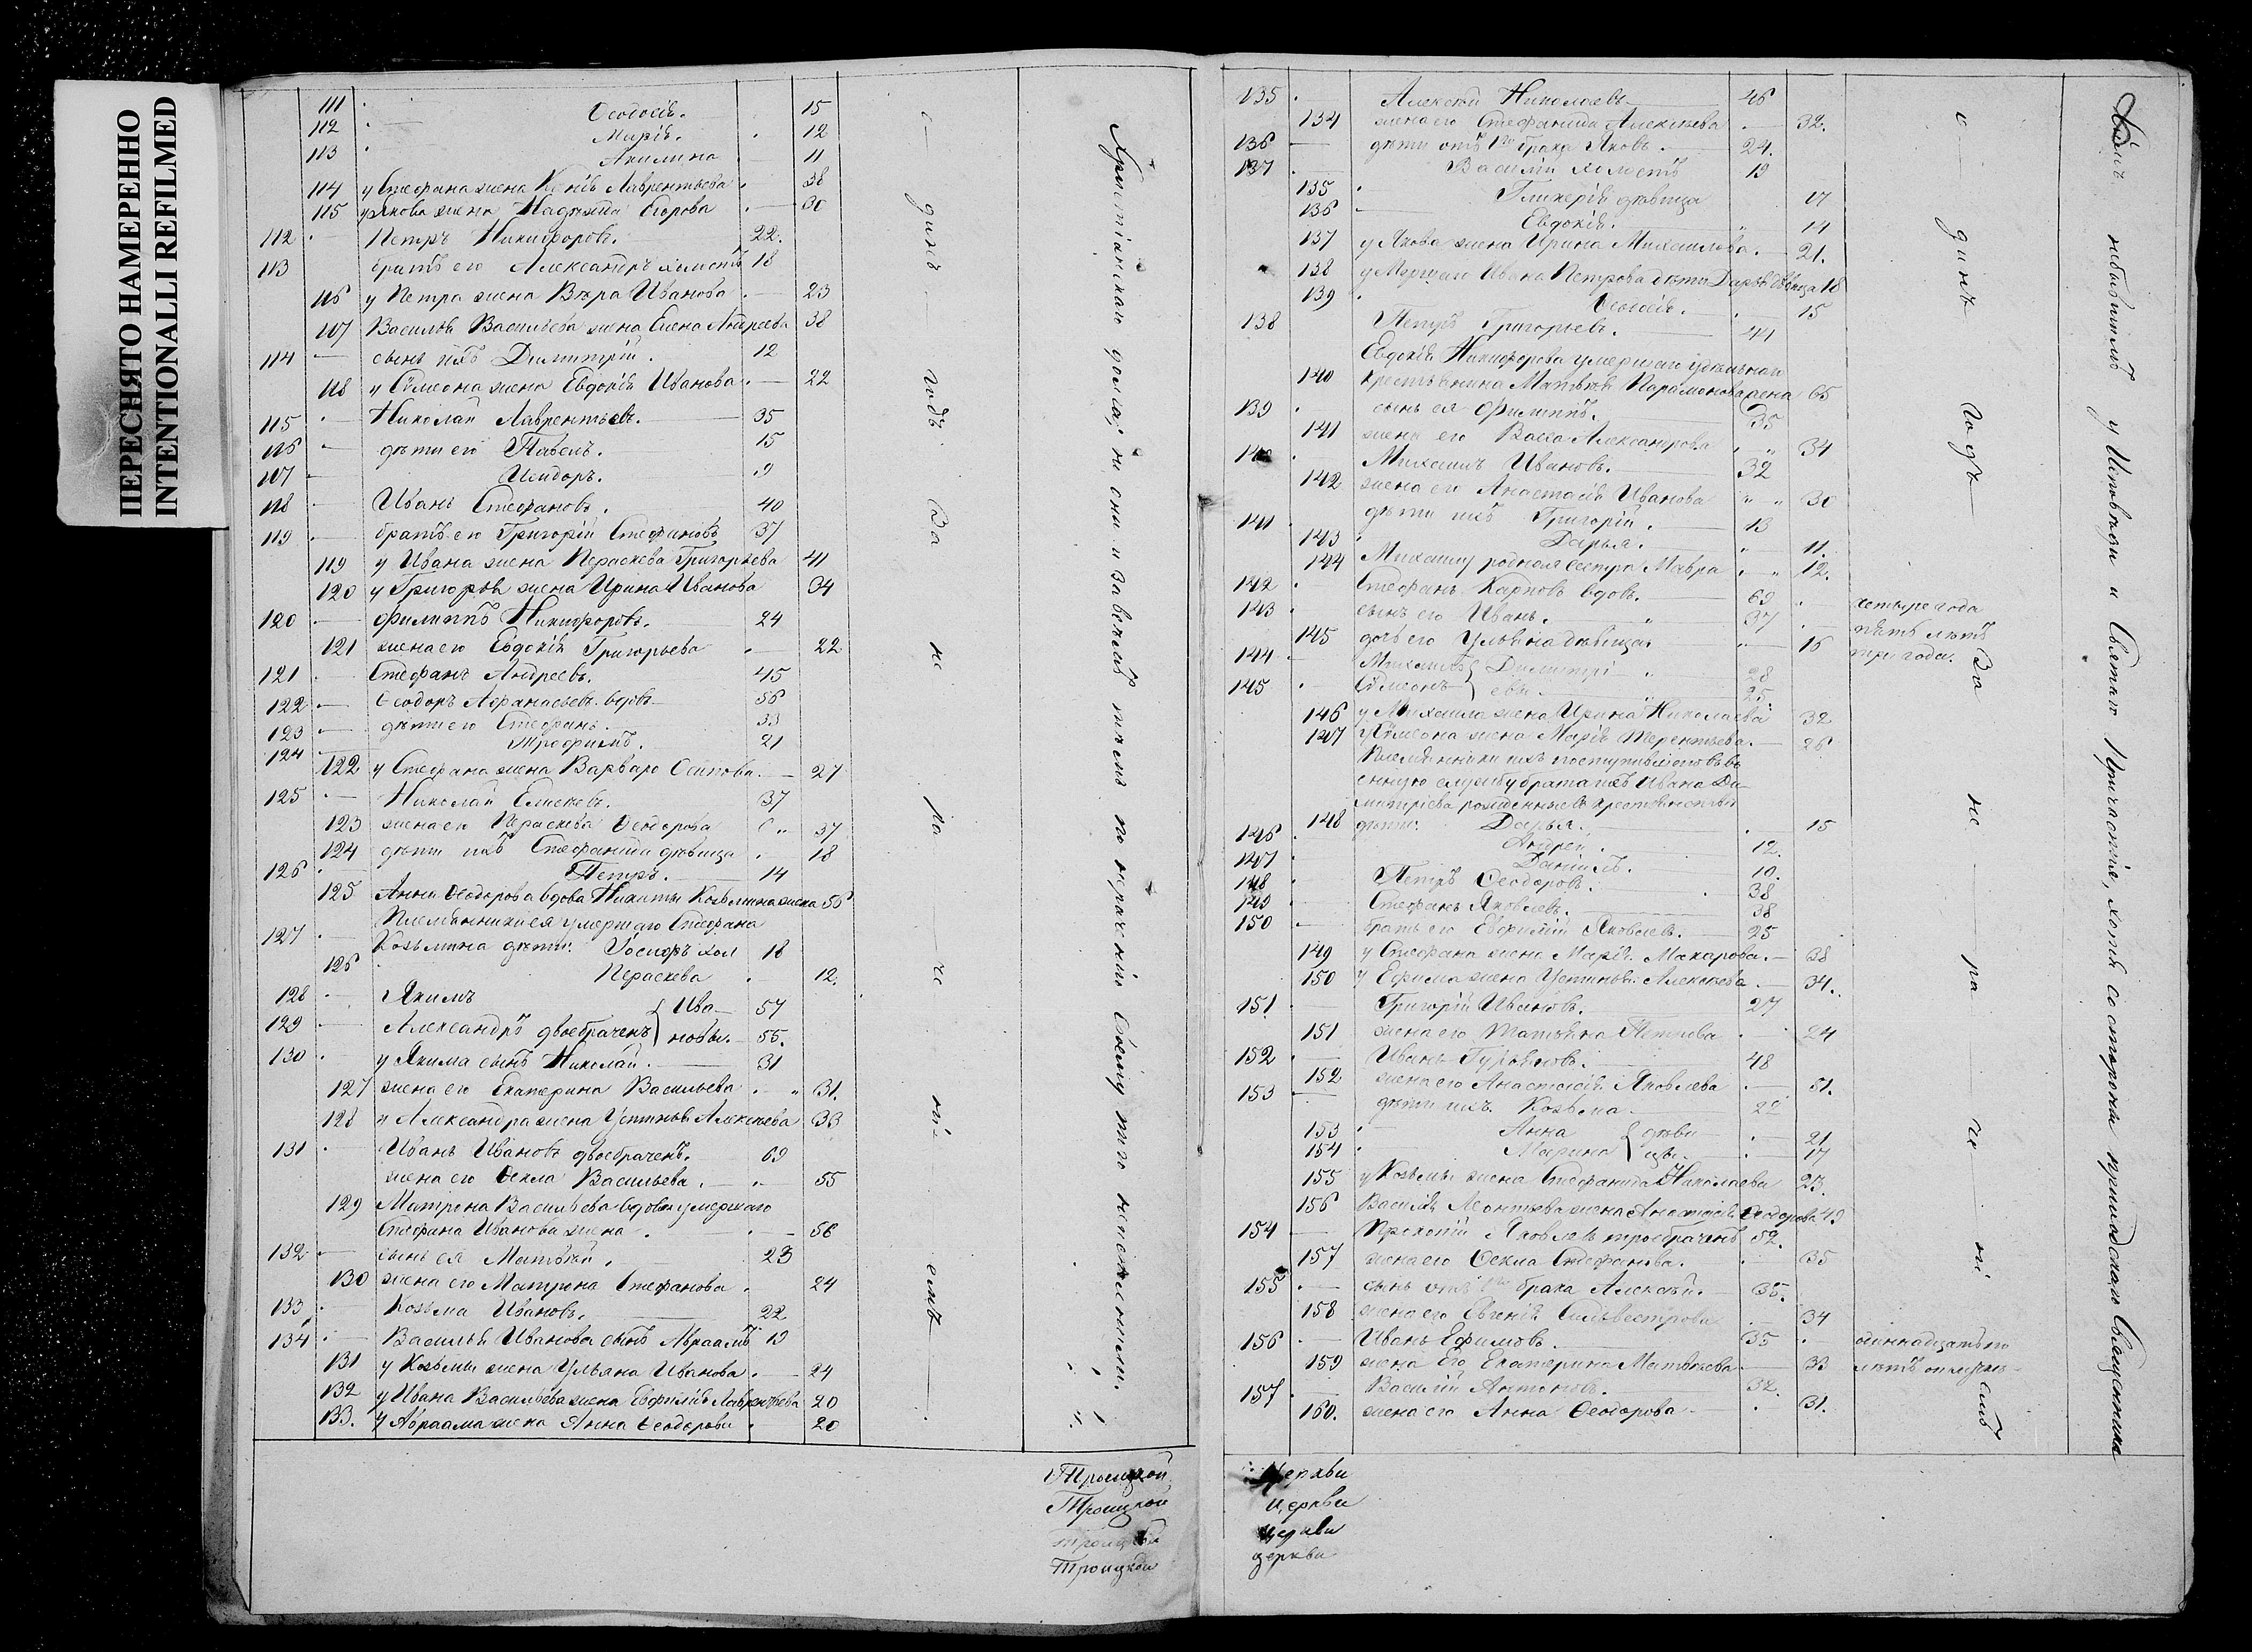 ПЕРЕСНЯТО НАМЕРЕННО
INTENTIONALLI REFILMED
111 Ѳеодосія. 15
112 Марія. 12
113 Акилина 11
114 у Стефана жена Ксенія Лаврентьева 38
115 у Якова жена Надежда Егорова 30
112 Петръ Никифоровъ. 22.
113 братъ его Александръ холостъ 18
116 у Петра жена Вѣра Иванова 23
117 Василья Васильева жена Елена Андреева 38
114 сынъ ихъ Димитрій. 12
118 у Сѵмеона жена Евдокія Иванова 22
115 Николай Лаврентьевъ. 35
116 дѣти его Павелъ. 15
117 Исидоръ. 9
118 Иванъ Стефановъ. 40
119 братъ его Григорій Стефановъ 37
119 у Ивана жена Параскева Григорьева 41
120 у Григорья жена Ирина Иванова 34
120 Филиппъ Никифоровъ. 24
121 жена его Евдокія Григорьева 22
121 Стефанъ Андреевъ. 45
122 Ѳеодоръ Афанасьевъ вдовъ 56
123 дѣти его Стефанъ. 33
124 Трофимъ. 21
122 у Стефана жена Варвара Осипова. 27
125 Николай Елисеевъ. 37
123 жена его Параскева Ѳеодорова 37
124 дѣти ихъ Стефанида дѣвица 18
126 Петръ. 14
125 Анна Ѳеодорова вдова Никиты Козьмина жена 56
Племянники ея умершаго Стефана
127 Козьмина дѣти: Іосифъ хол 18
126 Параскева 12.
128 Якимъ Ива- 57
129 Александръ двоебраченъ новы. 55.
130 у Якима сынъ Николай. 31
127 жена его Екатерина Васильева 31.
128 у Александра жена Устинья Алексѣева 33
131 Иванъ Ивановъ двоебраченъ. 69
жена его Ѳекла Васильева. 55
129 Матрена Васильева вдова умершаго
Стефана Иванова жена. 56
132 сынъ ея Матвѣй. 23
130 жена его Матрена Стефанова 24
133 Козьма Ивановъ. 22
134 Василья Иванова сынъ Авраамъ 19
131 у Козьмы жена Ульяна Иванова. 24
132 у Ивана Васильева жена Евфимія Лаврентьева 20
133. у Авраама жена Анна Ѳеодорова 20
одинъ годъ За не ра че ні емъ
Христіанскаго долга, но они и завсемъ тѣмъ по нераченію своему того неисполнили.
Троицкой
Троицкой
Троицкой
Троицкой
135 Алексѣй Николаевъ 46
134 жена его Стефанида Алексѣева 32.
136 дѣти отъ 1го брака Яковъ. 24.
137 Василій холостъ 19
135 Гликерія дѣвица 17
136 Евдокія. 14
137 у Якова жена Ирина Михаилова. 21.
138 умершаго Ивана Петрова дѣти Дарья дѣвица 18
139 Ѳеодосія. 15
138 Петръ Григорьевъ. 44
Евдокія Никифорова умершаго удѣльнаго
140 крестьянина Матвѣя Парамонова жена 65
139 сынъ ея Филиппъ. 35
141 жена его Васса Александрова 34
140 Михаилъ Ивановъ. 32
142 жена его Анастасія Иванова 30
141 дѣти ихъ Григорій. 13
143 Дарья. 11.
144 Михаилу родная сестра Мавра 12.
142 Стефанъ Карповъ вдовъ. 69 четыре года
143 сынъ его Иванъ. 37 пять лѣтъ
145 дочь его Ульяна дѣвица. 16 три года.
144 Михаилъ Димитрі- 28
145 Сѵмеонъ евы. 25.
146 у Михаила жена Ирина Николаева 32
147 у Сѵмеона жена Марія Терентьева. 26
Племянники ихъ поступившаго въ во
енную службу брата ихъ Ивана Ди-
митріева рожденные въ крестьянствѣ
148 дѣти: Дарья. 15
146 Андрей. 12.
147 Даніилъ. 10.
148 Петръ Ѳеодоровъ. 38
149 Стефанъ Яковлевъ. 38
150 братъ его Евфимій Яковлевъ. 25
149 у Стефана жена Марія Макарова. 38
150 у Ефима жена Устинья Алексѣева 34.
151 Григорій Ивановъ. 27
151 жена его Татьяна Петрова 24
152 Иванъ Гурьяновъ. 48
152 жена его Анастасія Яковлева 51.
153 дѣти ихъ Козьма. 22
153 Анна дѣви- 21
154 Марина цы. 17
155 у Козьмы жена Стефанида Николаева 23.
156 Василія Леонтьева жена Анастасія Ѳеодорова 49
154 Прокопій Яковлевъ троебраченъ 52.
157 жена его Ѳекла Стефанова. 35
155 сынъ отъ 1го брака Алексѣй. 35.
158 жена его Евгенія Сильвестрова 34
156 Иванъ Ефимовъ. 35 одиннадцать
159 жена его Екатерина Матвѣева 33 лѣтъ
157 Василій Антоновъ. 32.
160. жена его Анна Ѳеодорова 31.
одинъ годъ За не ра че ні емъ
небывшимъ у Исповѣди и Святаго Причастія, хотя со стороны приходскаго Священника
Церкви
церкви
церкви
церкви